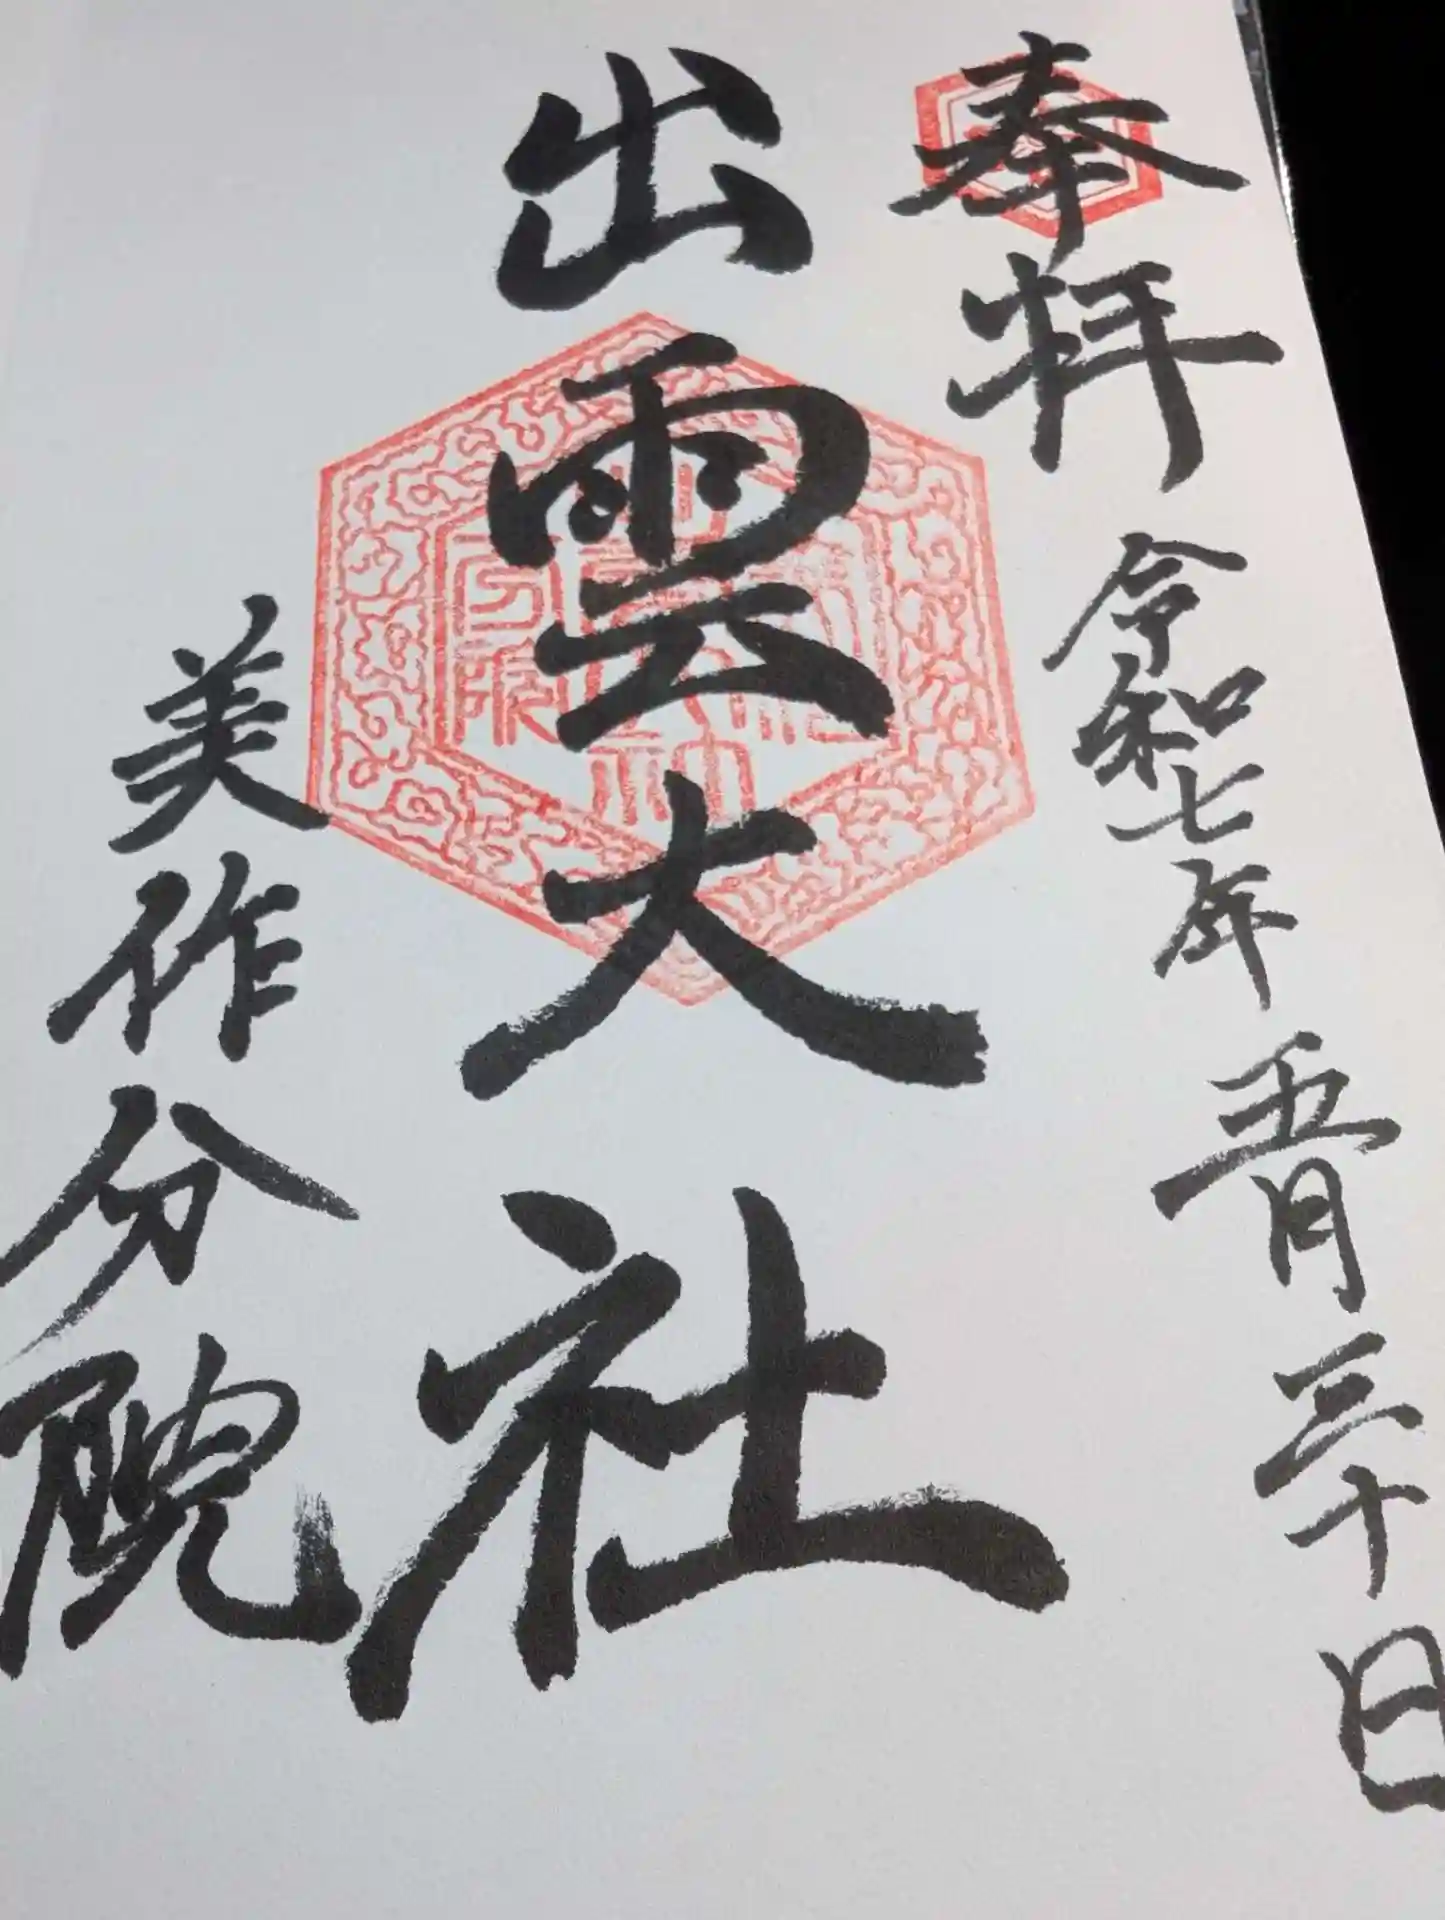 奉拝
令和七年五月三十日
出雲大社
美作分院